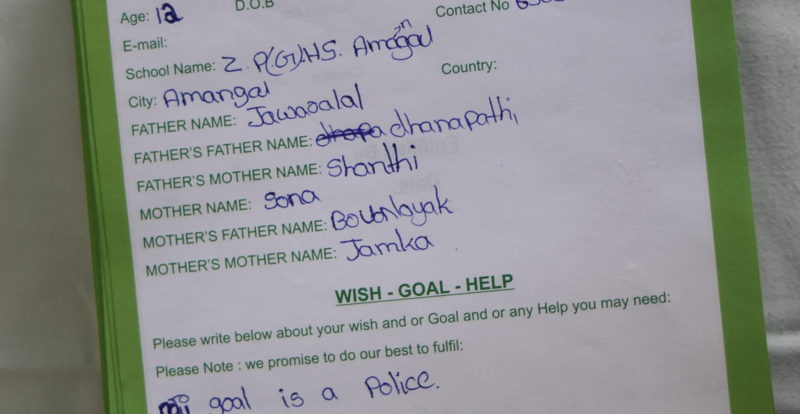 Age: 12 D.O.B Contact No
E-mail:
School Name: Z. P(G)HS. Amangal
City: Amangal Country:
FATHER NAME: Jawaoalal
FATHER'S FATHER NAME: dhanapathi
FATHER'S MOTHER NAME: Shanthi
MOTHER NAME: Sona
MOTHER'S FATHER NAME:
MOTHER'S MOTHER NAME: Jamka
WISH - GOAL - HELP
Please write below about your wish and or Goal and or any Help you may need:
Please Note : we promise to do our best to fulfil:
mi goal is a Police.